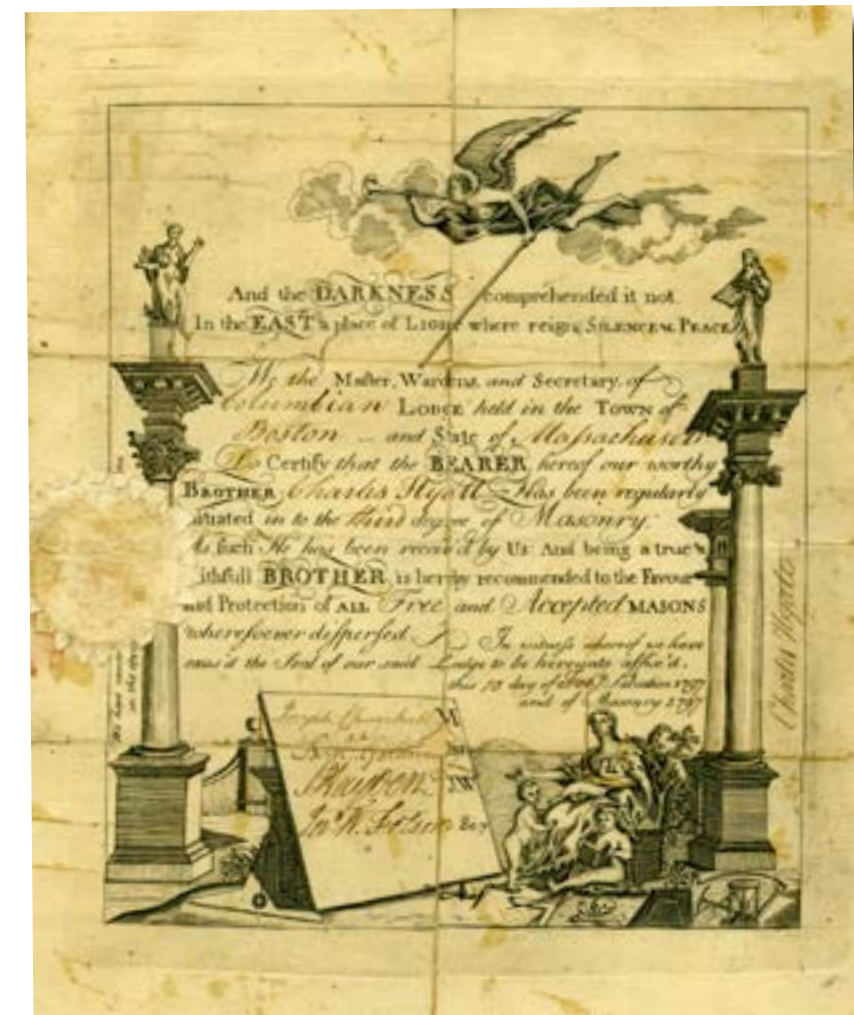 And the DARKNESS comprehended it not
In the EAST a place of LIGHT where reigns SILENCE & PEACE
We the Master, Wardens, and Secretary, of
Columbian LODGE held in the TOWN of
Boston and State of Massachusets
Do Certify that the BEARER hereof our worthy
BROTHER Charles Hyatt Has been regularly
itiated in to the third degree of Masonry.
As such He has been receiv'd by Us And being a true &
ithfull BROTHER is hereby recommended to the Favour
and Protection of ALL Free and Accepted MASONS
wheresoever dispersed. In witness whereof we have
caus'd the Seal of our said Lodge to be hereunto affix'd,
this day of 1797
and of Masonry 5797
Joseph Churchill M
SW
JW
Jno. W. Folsom Secy
Charles